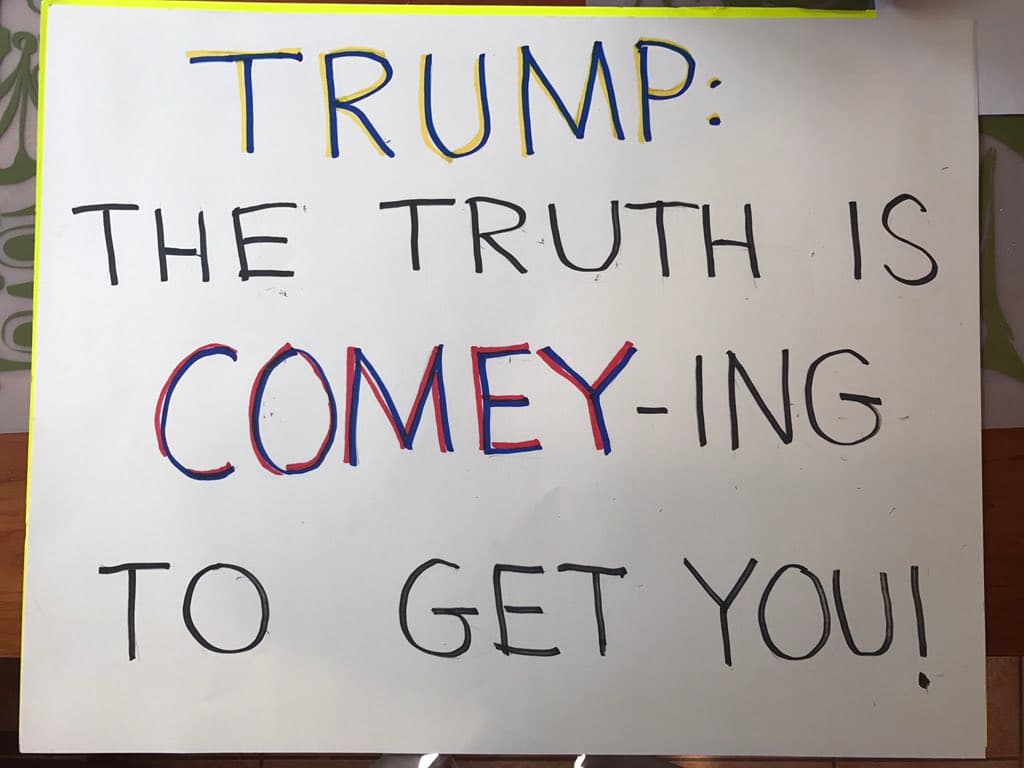 TRUMP:
THE TRUTH IS
COMEY-ING
TO GET YOU!